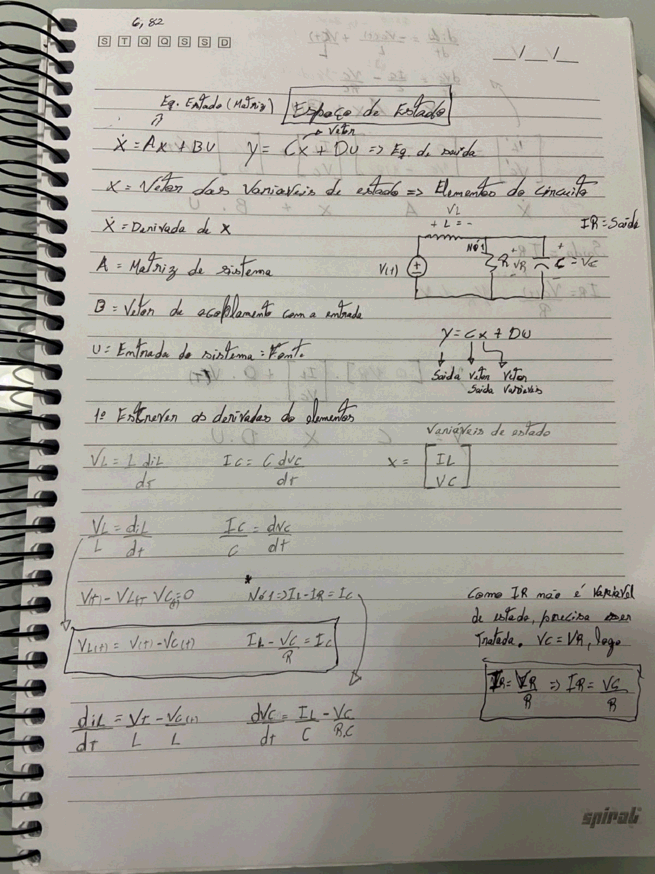 6,82
S T Q Q S S D
__/__/__
Eq. Estado (Matriz)
Espaço de Estado
Vetor
Ẋ = AX + BU   y = CX + DU => Eq. de saida
X = Vetor das Variaveis de estado => Elementos do circuito
Ẋ = Derivada de X
IR = Saida
VL
+ L = -
Nó 1
V(t)
R
+
VR
-
+
C = VC
-
A = Matriz de sistema
B = Vetor de acoplamento com a entrada
U = Entrada do sistema = Font.
y = CX + DU
Saida Vetor Vetor
Saida Variaveis
1º Escrever as derivadas do elementos
Variáveis de estado
VL = L diL/dt   IC = C dVC/dt   X = [IL
VC]
VL/L = diL/dt   IC/C = dVC/dt
V(t) - VL(t) - VC(t) = 0   * Nó 1 => IL - IR = IC
VL(t) = V(t) - VC(t)   IL - VC/R = IC
Como IR não é variável
de estado, precisa ser
tratada. VC = VR, logo
IR = VR/R => IR = VC/R
diL/dt = Vt/L - VC(t)/L   dVC/dt = IL/C - VC/R.C
spiral